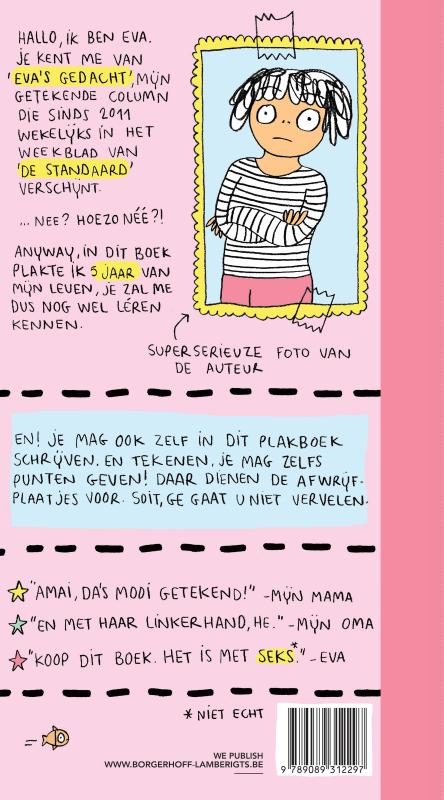 HALLO, IK BEN EVA.
JE KENT ME VAN
'EVA'S GEDACHT', MIJN
GETEKENDE COLUMN
DIE SINDS 2011
WEKELIJKS IN HET
WEEKBLAD VAN
'DE STANDAARD'
VERSCHIJNT.
... NEE? HOEZO NÉÉ?!
ANYWAY, IN DIT BOEK
PLAKTE IK 5 JAAR VAN
MIJN LEVEN, JE ZAL ME
DUS NOG WEL LÉREN
KENNEN.
SUPERSERIEUZE FOTO VAN
DE AUTEUR
EN! JE MAG OOK ZELF IN DIT PLAKBOEK
SCHRIJVEN. EN TEKENEN, JE MAG ZELFS
PUNTEN GEVEN! DAAR DIENEN DE AFWRIJF-
PLAATJES VOOR. SOIT, GE GAAT U NIET VERVELEN.
"AMAI, DA'S MOOI GETEKEND!" - MIJN MAMA
"EN MET HAAR LINKERHAND, HE." - MIJN OMA
"KOOP DIT BOEK. HET IS MET SEKS*." - EVA
* NIET ECHT
WE PUBLISH
WWW.BORGERHOFF-LAMBERIGTS.BE
9 789089 312297